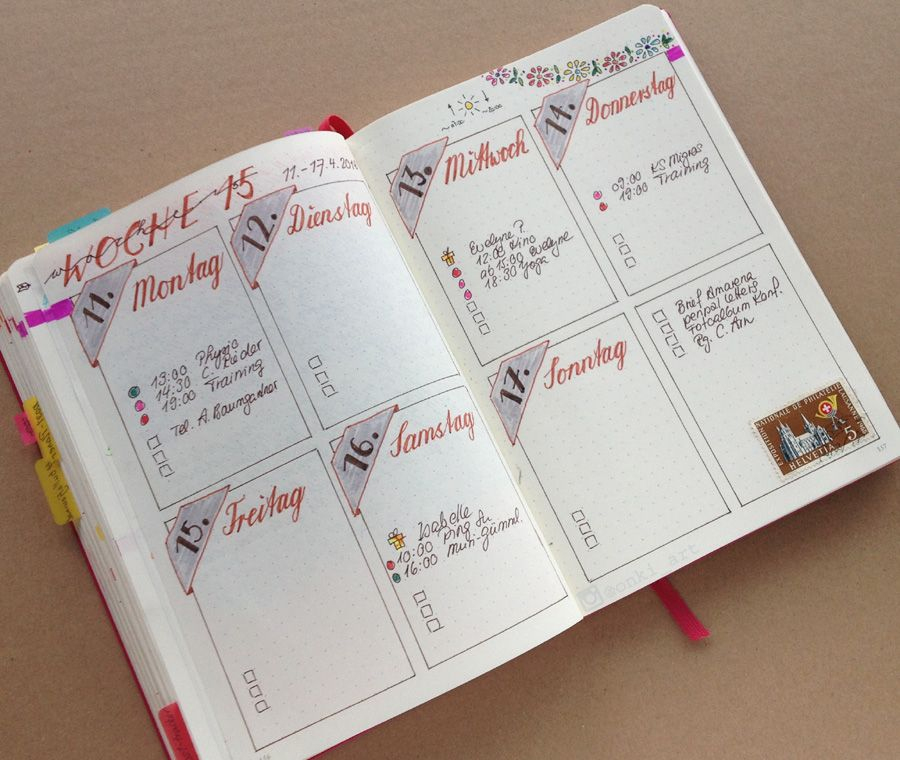 WOCHE 15
11.-17.4.201
11.
Montag
13:00 Physio
14:30 C. Rieder
19:00 Training
Tel. A. Baumgartner
12.
Dienstag
15.
Freitag
16.
Samstag
Isabelle
10:00 Ping Su
16:00 Muri-gümml.
13.
Mittwoch
Evelyne P.
12:00 Kino
ab 15:00 Evelyne
18:30 Yoga
14.
Donnerstag
09:00 KS Migros
19:00 Training
17.
Sonntag
Brief Amavena
penpal letters
Fotoalbum Konf.
Rg. C. Arn
NATIONALE DE PHILATELIE
HELVETIA 5
137
@onki_art